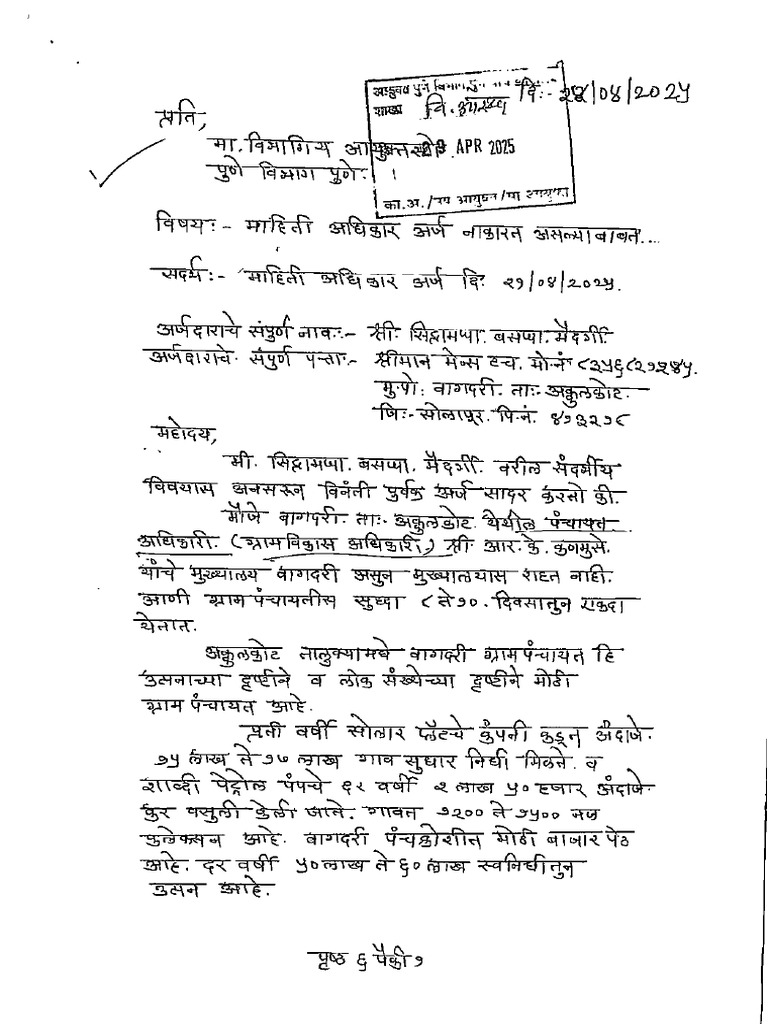 दि:- २४/०४/२०२५
शाखा
29 APR 2025
का.अ./
प्रति,
मा. विभागिय आयुक्त सो.
पुणे विभाग पुणे.
विषय:- माहिती अधिकार अर्ज नाकारत असल्या बाबत...
सदर्भ:- माहिती अधिकार अर्ज दि: २१/०४/२०२५.
अर्जदाराचे संपुर्ण नाव:- श्री. सिद्रामप्पा. बसप्पा. मैदर्गी.
अर्जदाराचे संपुर्ण पत्ता:- श्रीमान मेन्स टच. मो.नं ८३५६८२१२४५.
मु.पो: वागदरी. ता:- अक्कलकोट.
जि:- सोलापूर. पि.नं. ४१३२१८
महोदय,
मी. सिद्रामप्पा. बसप्पा. मैदर्गी. वरील संदर्भीय
विषयास अनसरून विनंती पुर्वक अर्ज सादर करतो की.
मौजे वागदरी. ता:- अक्कलकोट. येथील पंचायत
अधिकारी. (ग्रामविकास अधिकारी.) श्री. आर. के. कलमुसे.
यांचे मुख्यालय वागदरी असुन मुख्यालयास राहत नाही.
आणी ग्राम पंचायतीस सुध्दा ८ ते १०. दिवसातुन एकदा
येतात.
अक्कलकोट तालुक्यामधे वागदरी ग्रामपंचायत हि
उत्पनाच्या दृष्टीने व लोक संख्येच्या दृष्टीने मोठी
ग्राम पंचायत आहे.
प्रती वर्षी सोलार प्लॅटचे कंपनी कडून अंदाजे.
१५ लाख ते १७ लाख गाव सुधार निधी मिळते. व
पेट्रोल पंपचे दर वर्षी २ लाख ५० हजार अंदाजे.
कर वसुली केली जाते. गावत १२०० ते १५०० नळ
कलेक्सन आहे. वागदरी पंचक्रोशीत मोठी बाजार पेठ
आहे. दर वर्षी ५० लाख ते ६० लाख स्वनिधीतुन
उत्पन आहे.
पृष्ठ ६ पैकी १